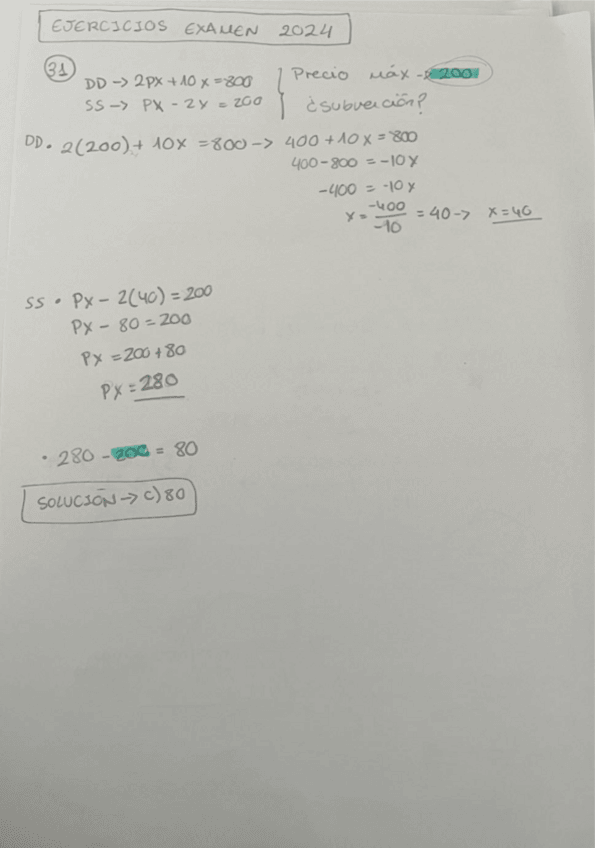 EJERCICIOS EXAMEN 2024
31
DD -> 2Px + 10x = 800
SS -> Px - 2x = 200
Precio máx -> 200
¿subvención?
DD. 2(200) + 10x = 800 -> 400 + 10x = 800
400 - 800 = -10x
-400 = -10x
x = -400/-10 = 40 -> x = 40
SS • Px - 2(40) = 200
Px - 80 = 200
Px = 200 + 80
Px = 280
• 280 - 200 = 80
SOLUCIÓN -> C) 80